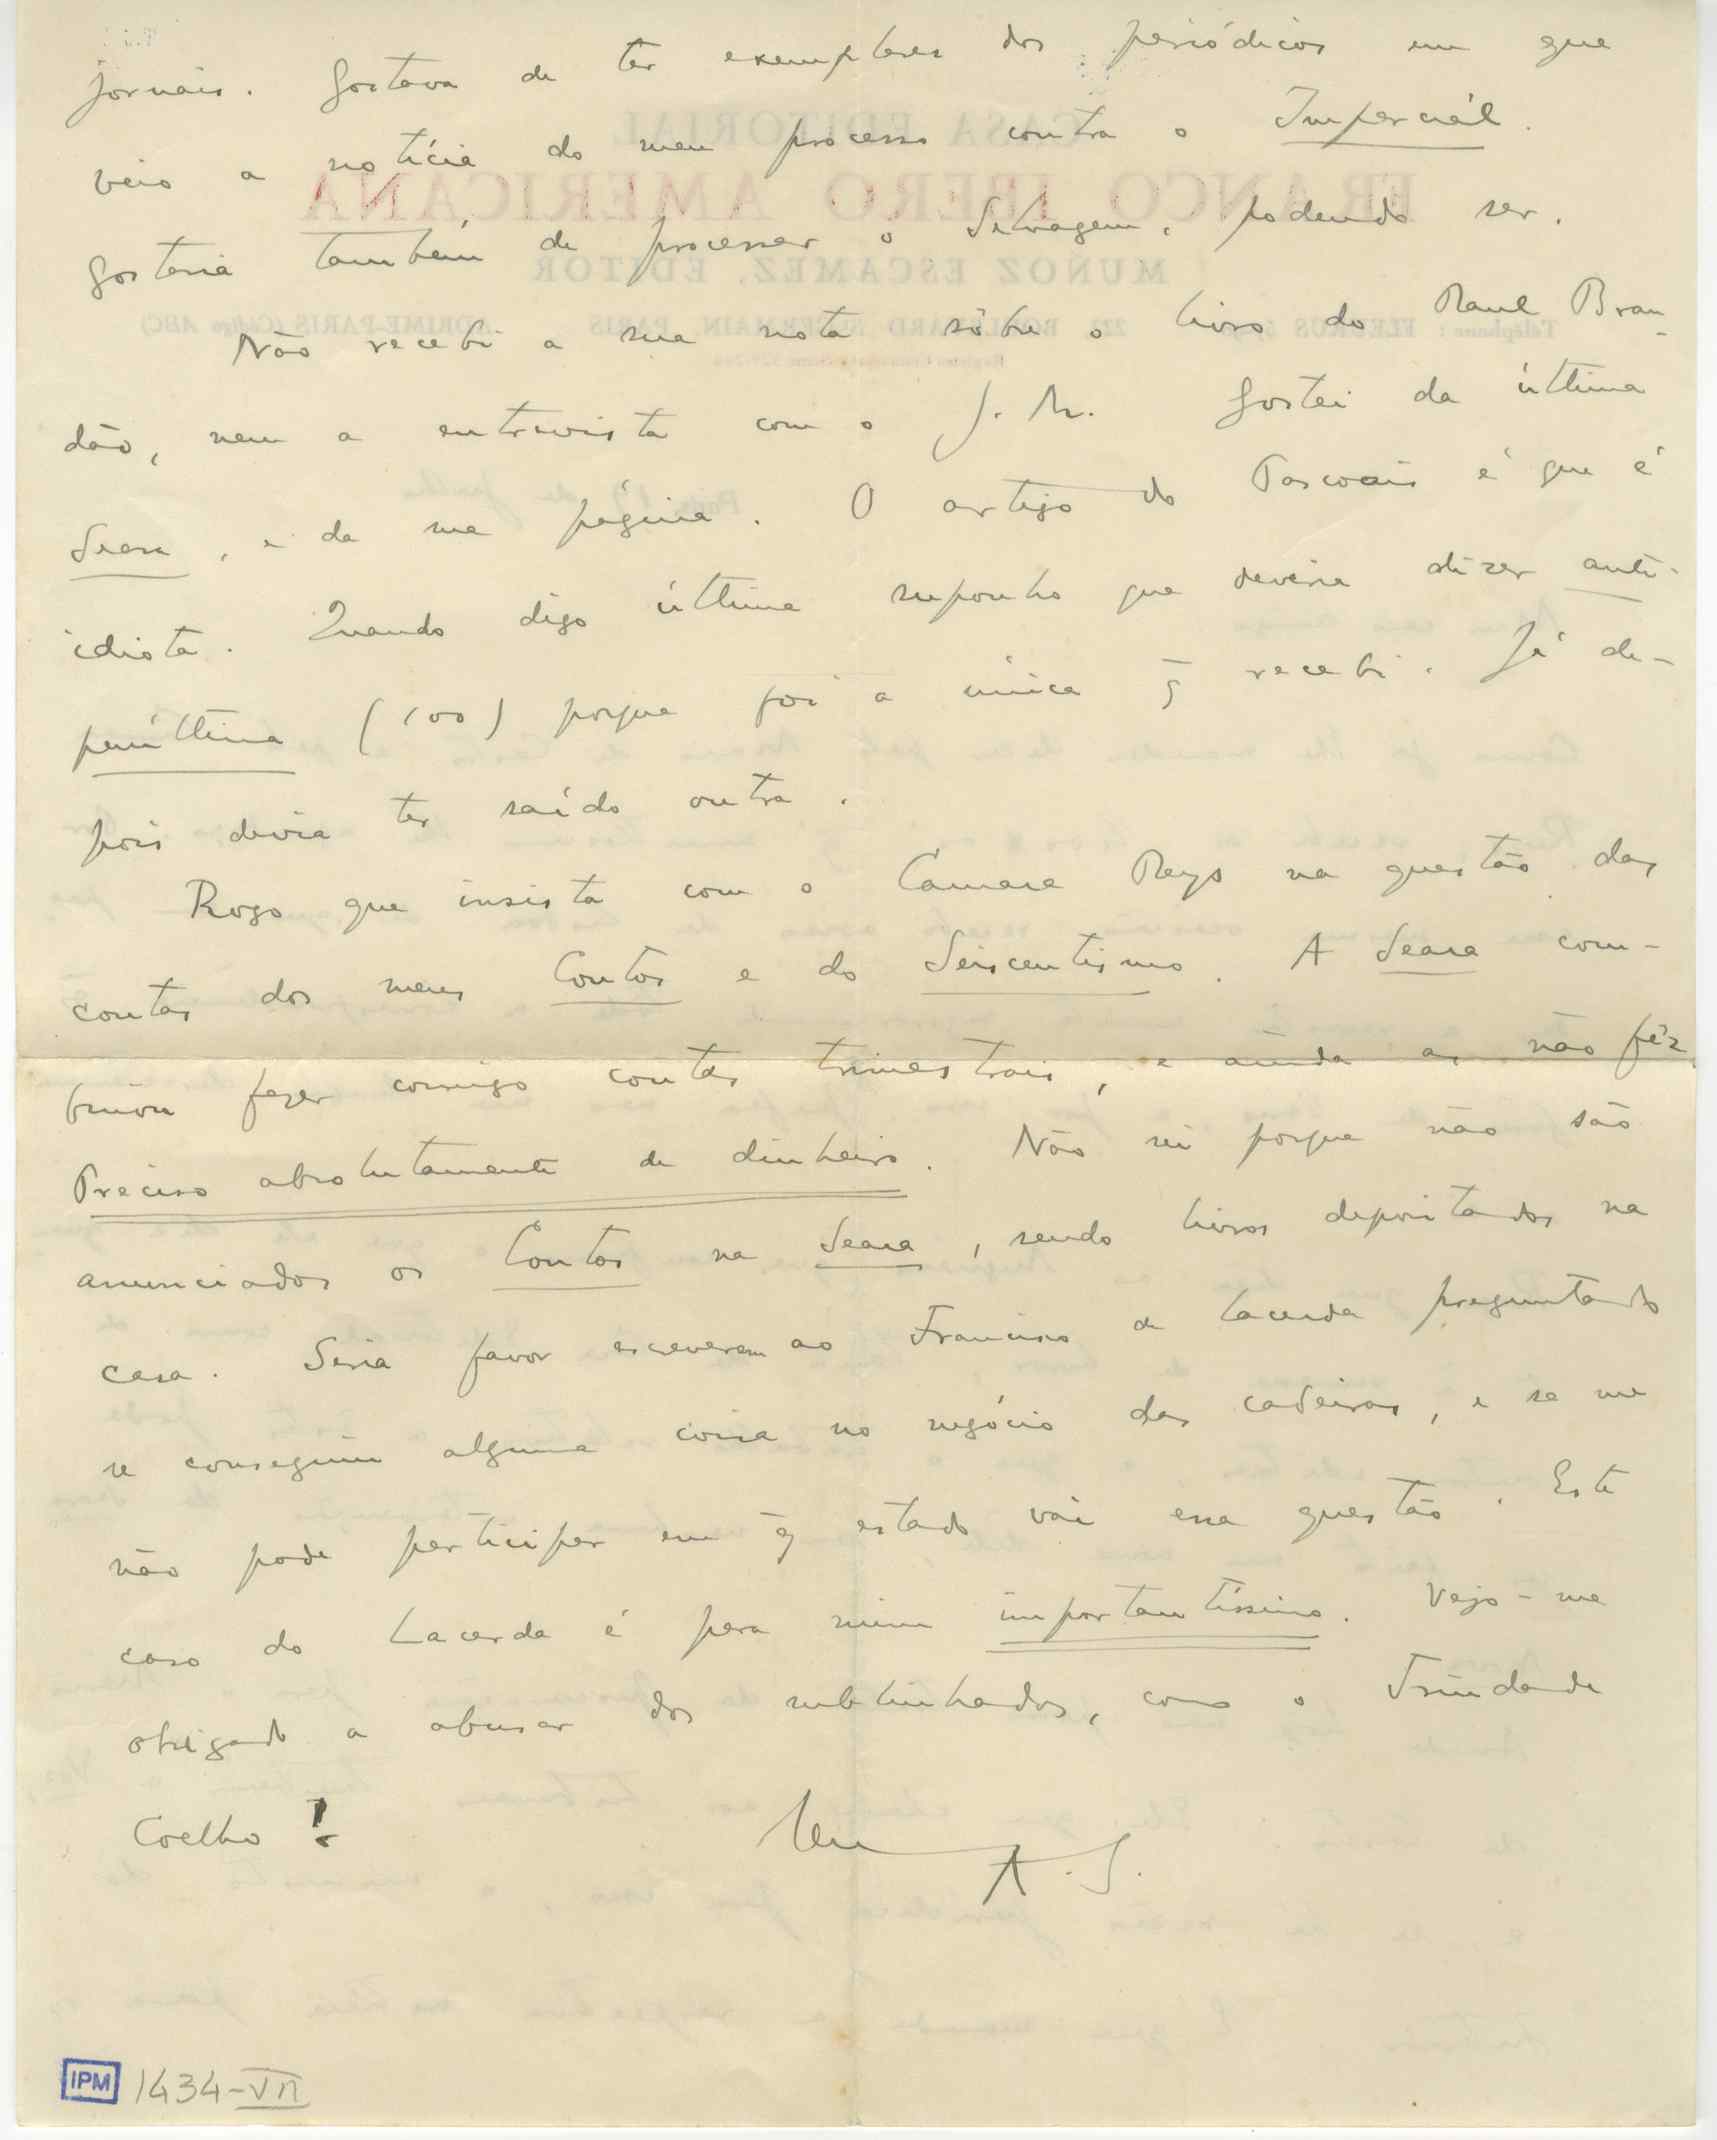 jornais. Gostava de ter exemplares dos periódicos em que
veio a notícia do meu processo contra o Imparcial.
Gostaria também de processar o Selvagem, podendo ser.
Não recebi a sua nota sôbre o livro do Raul Bran-
dão, nem a entrevista com o J. M. Gostei da última
Seara, e da sua página. O artigo do Pascoais é que é
idiota. Quando digo última suponho que deveria dizer anti-
penúltima (100) porque foi a única q̄ recebi. Já de-
pois devia ter saído outra.
Rogo que insista com o Camara Reys na questão das
contas dos meus Contos e do Seiscentismo. A Seara com-
binou fazer comigo contas trimestrais, e ainda as não fêz.
Preciso absolutamente de dinheiro. Não sei porque não são
anunciados os Contos na Seara, sendo livros depositados na
casa. Seria favor escreverem ao Francisco de Lacerda preguntando
se conseguiu alguma coisa no negócio das cadeiras, e se me
não pode participar em q̄ estado vai essa questão. Este
caso do Lacerda é para mim importantíssimo. Vejo-me
obrigado a abusar dos sublinhados, como o Trindade
Coelho!
A. S.
IPM 1434-VII
CASA EDITORIAL
FRANCO IBERO AMERICANA
MUÑOZ ESCAMEZ, EDITOR